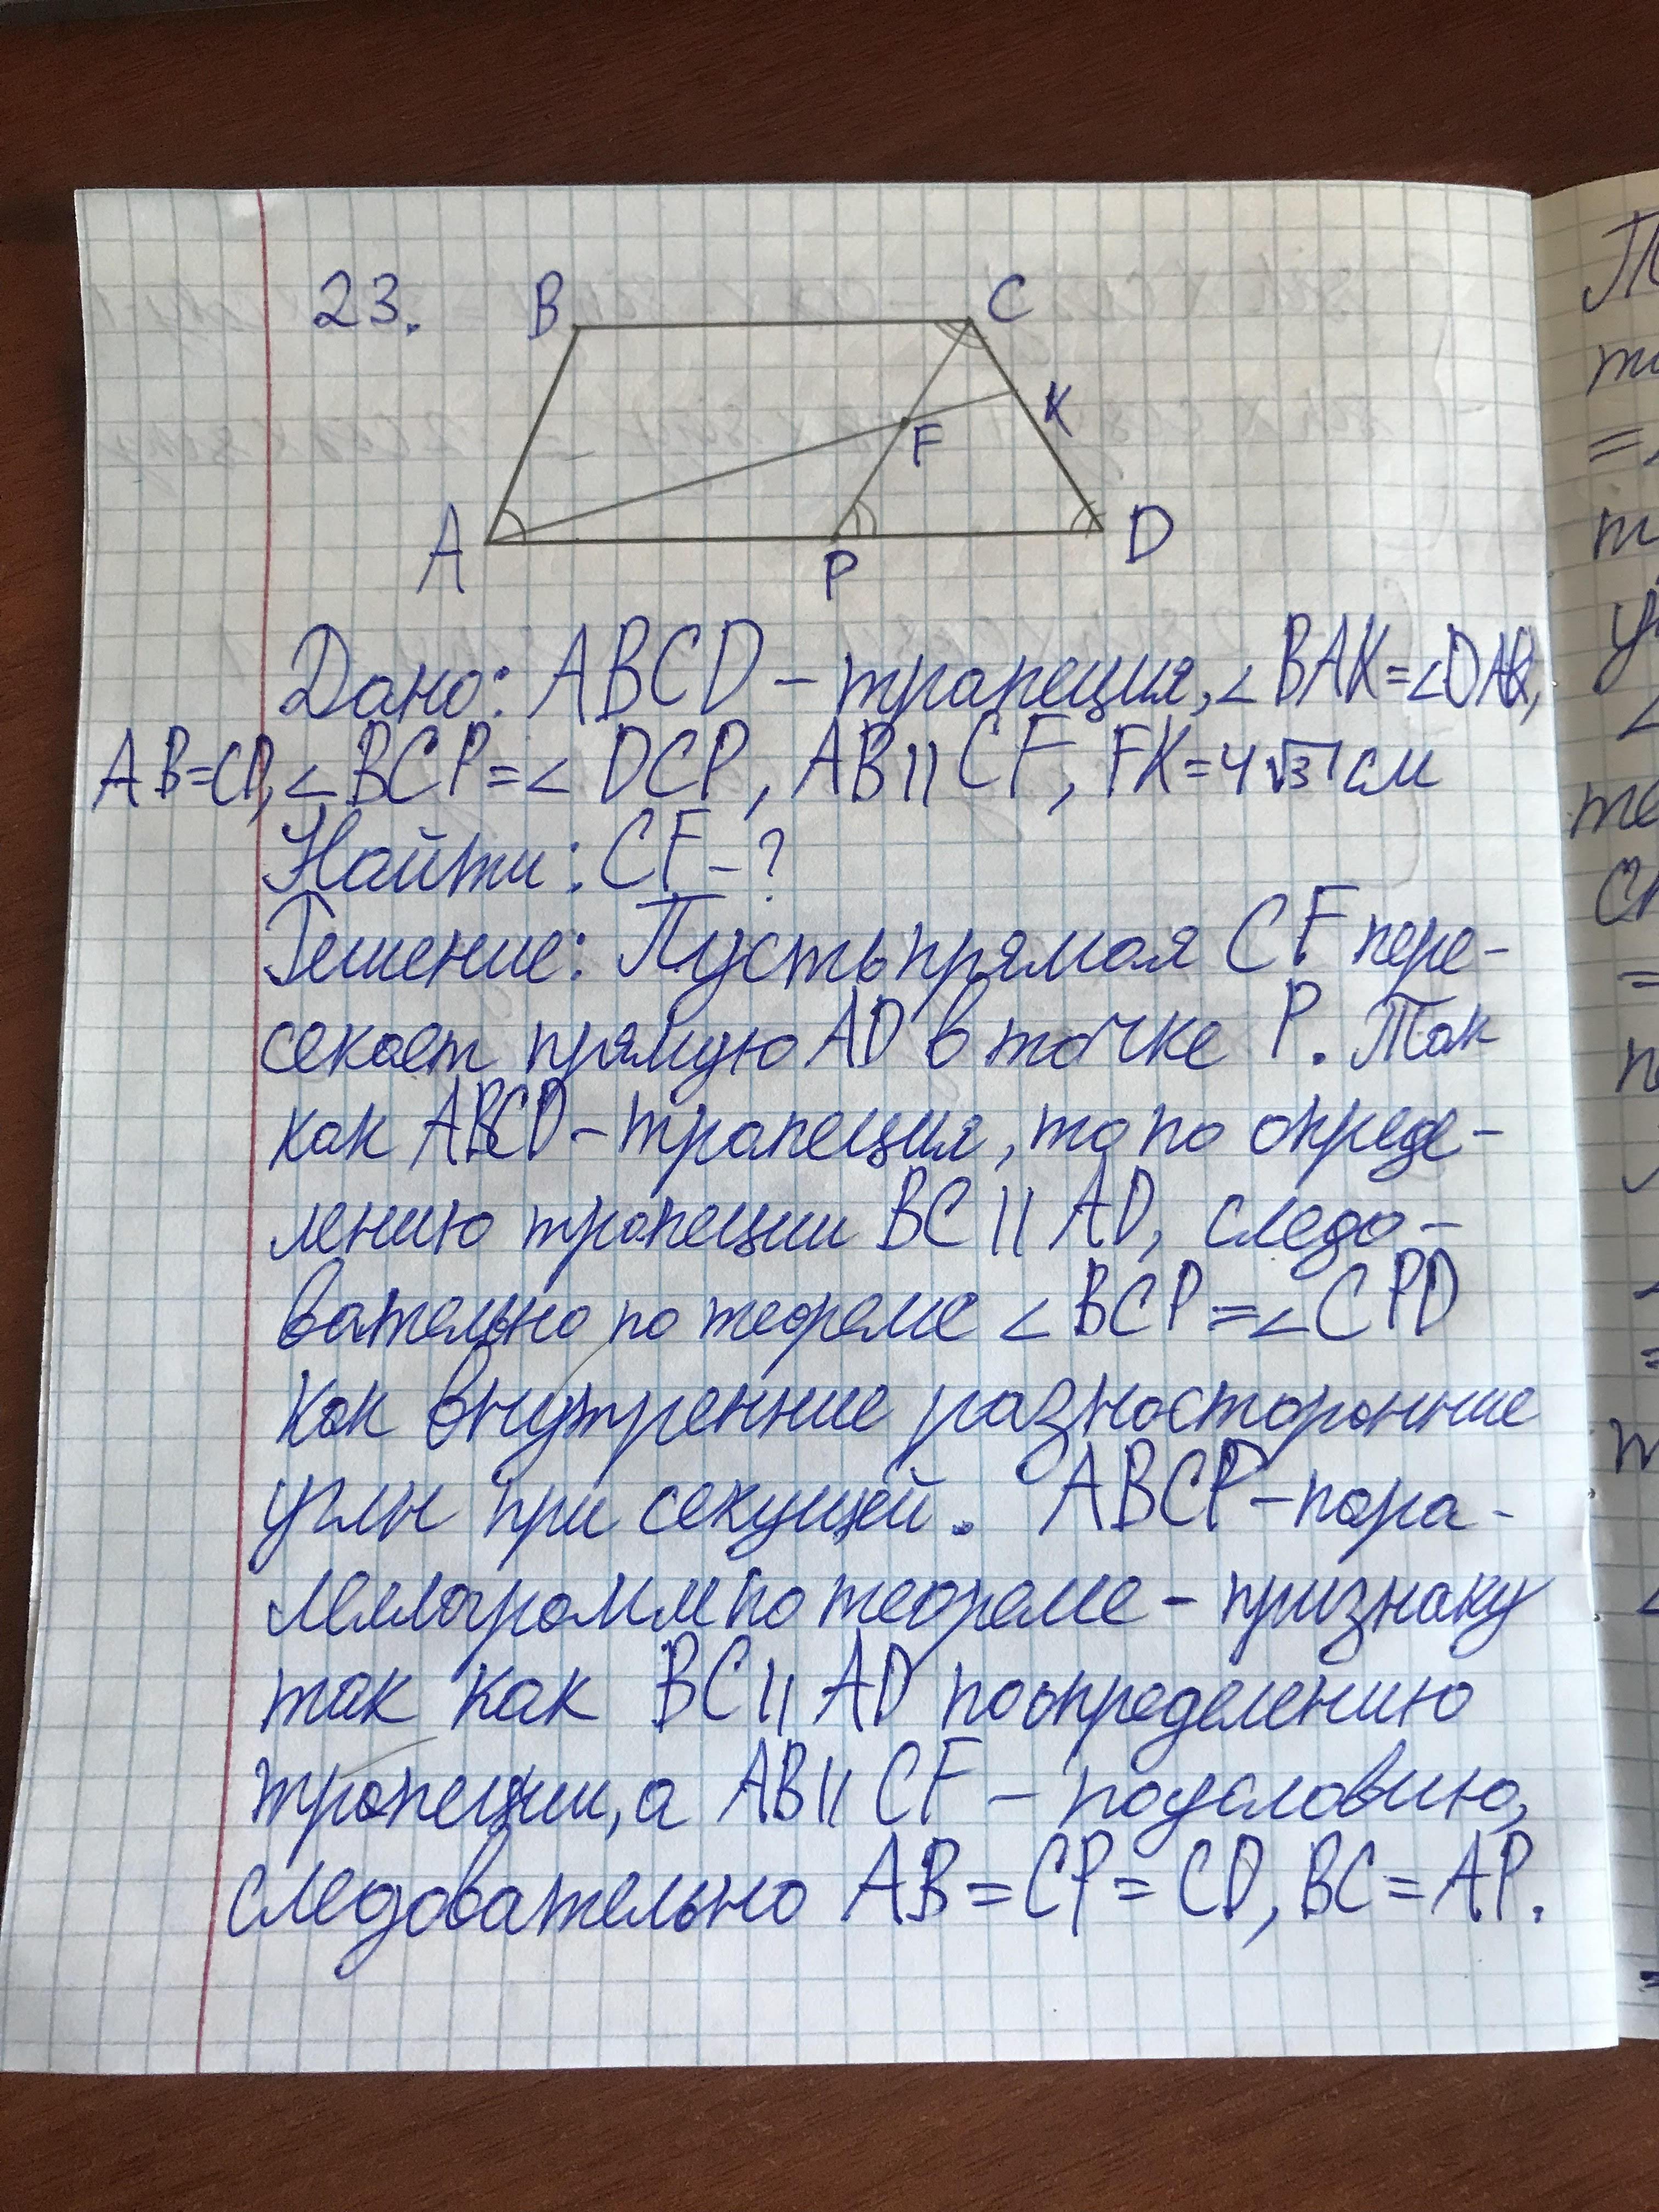 23.
B
C
K
F
A
P
D
Дано: ABCD – трапеция, ∠BAK=∠DAK,
AB=CD, ∠BCP=∠DCP, AB||CF, FK=4√3 см
Найти: CF-?
Решение: Пусть прямая CF пере-
секает прямую AD в точке P. Так
как ABCD – трапеция, то по опреде-
лению трапеции BC || AD, следо-
вательно по теореме ∠BCP=∠CPD
как внутренние разносторонние
углы при секущей. ABCP – пара-
леллограмм по теореме – признаку
так как BC || AD по определению
трапеции, а AB || CF – по условию,
следовательно AB = CP = CD, BC = AP.